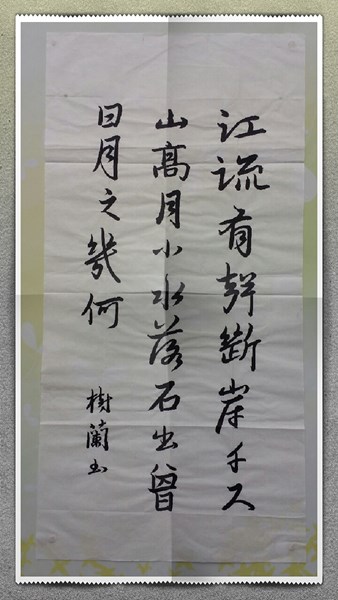 江流有聲斷岸千尺
山高月小水落石出曾
日月之幾何
樹蘭書